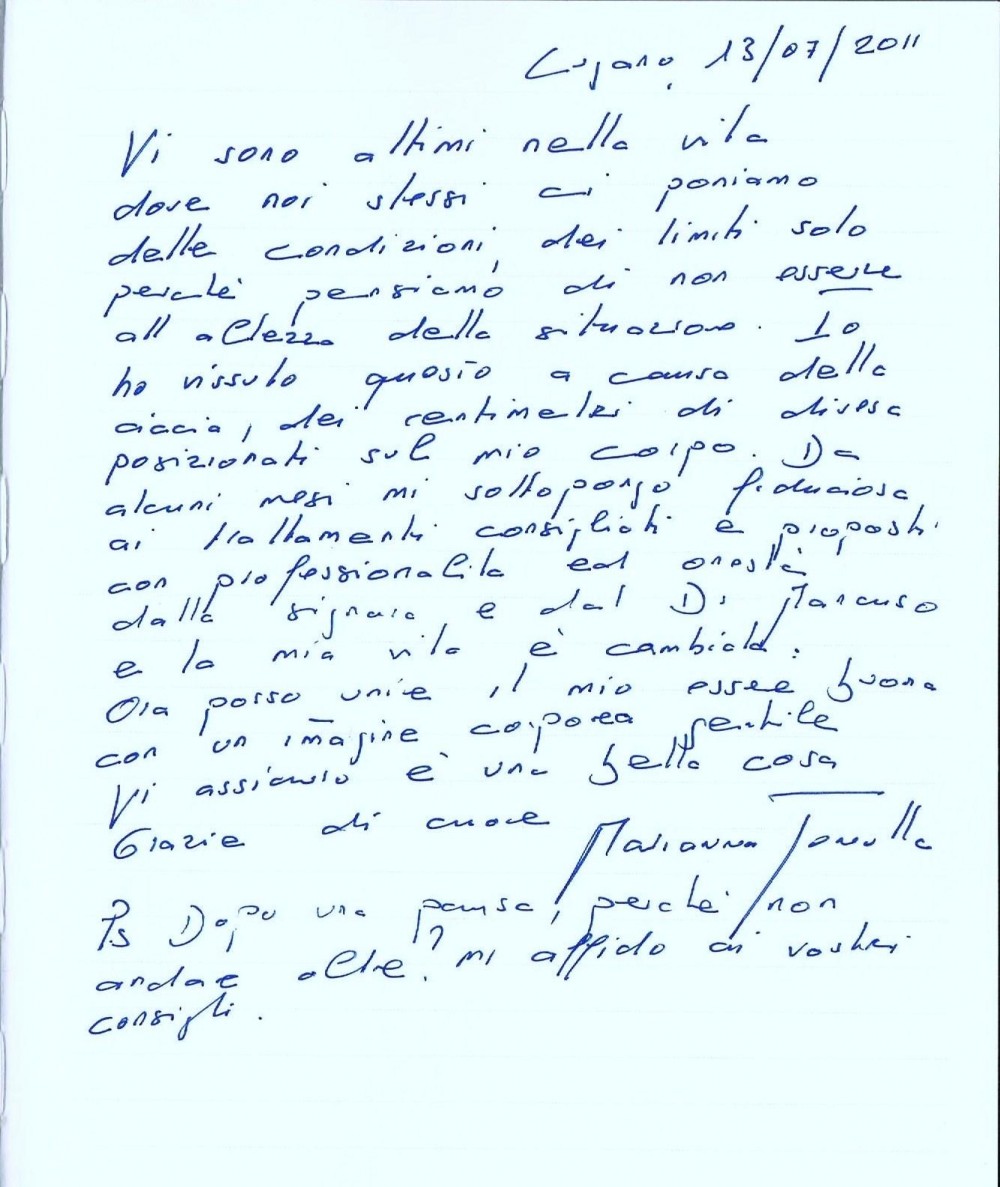 Lugano, 13/07/2011
Vi sono attimi nella vita
dove noi stessi ci poniamo
delle condizioni, dei limiti solo
perchè pensiamo di non essere
all altezza della situazione. Io
ho vissuto questo a causa della
ciccia, dei centimetri di
posizionati sul mio corpo. Da
alcuni mesi mi sottopongo fiduciosa
ai trattamenti consigliati e proposti
con professionalita ed onestà
dalla signora e dal Dr Mancuso
e la mia vita è cambiata.
Ora posso unire il mio essere buona
con un imagine corporea gentile
Vi assicuro è una bella cosa
Grazie di cuore Marianna
Ps Dopo una pausa, perchè non
andare oltre? mi affido ai vostri
consigli.